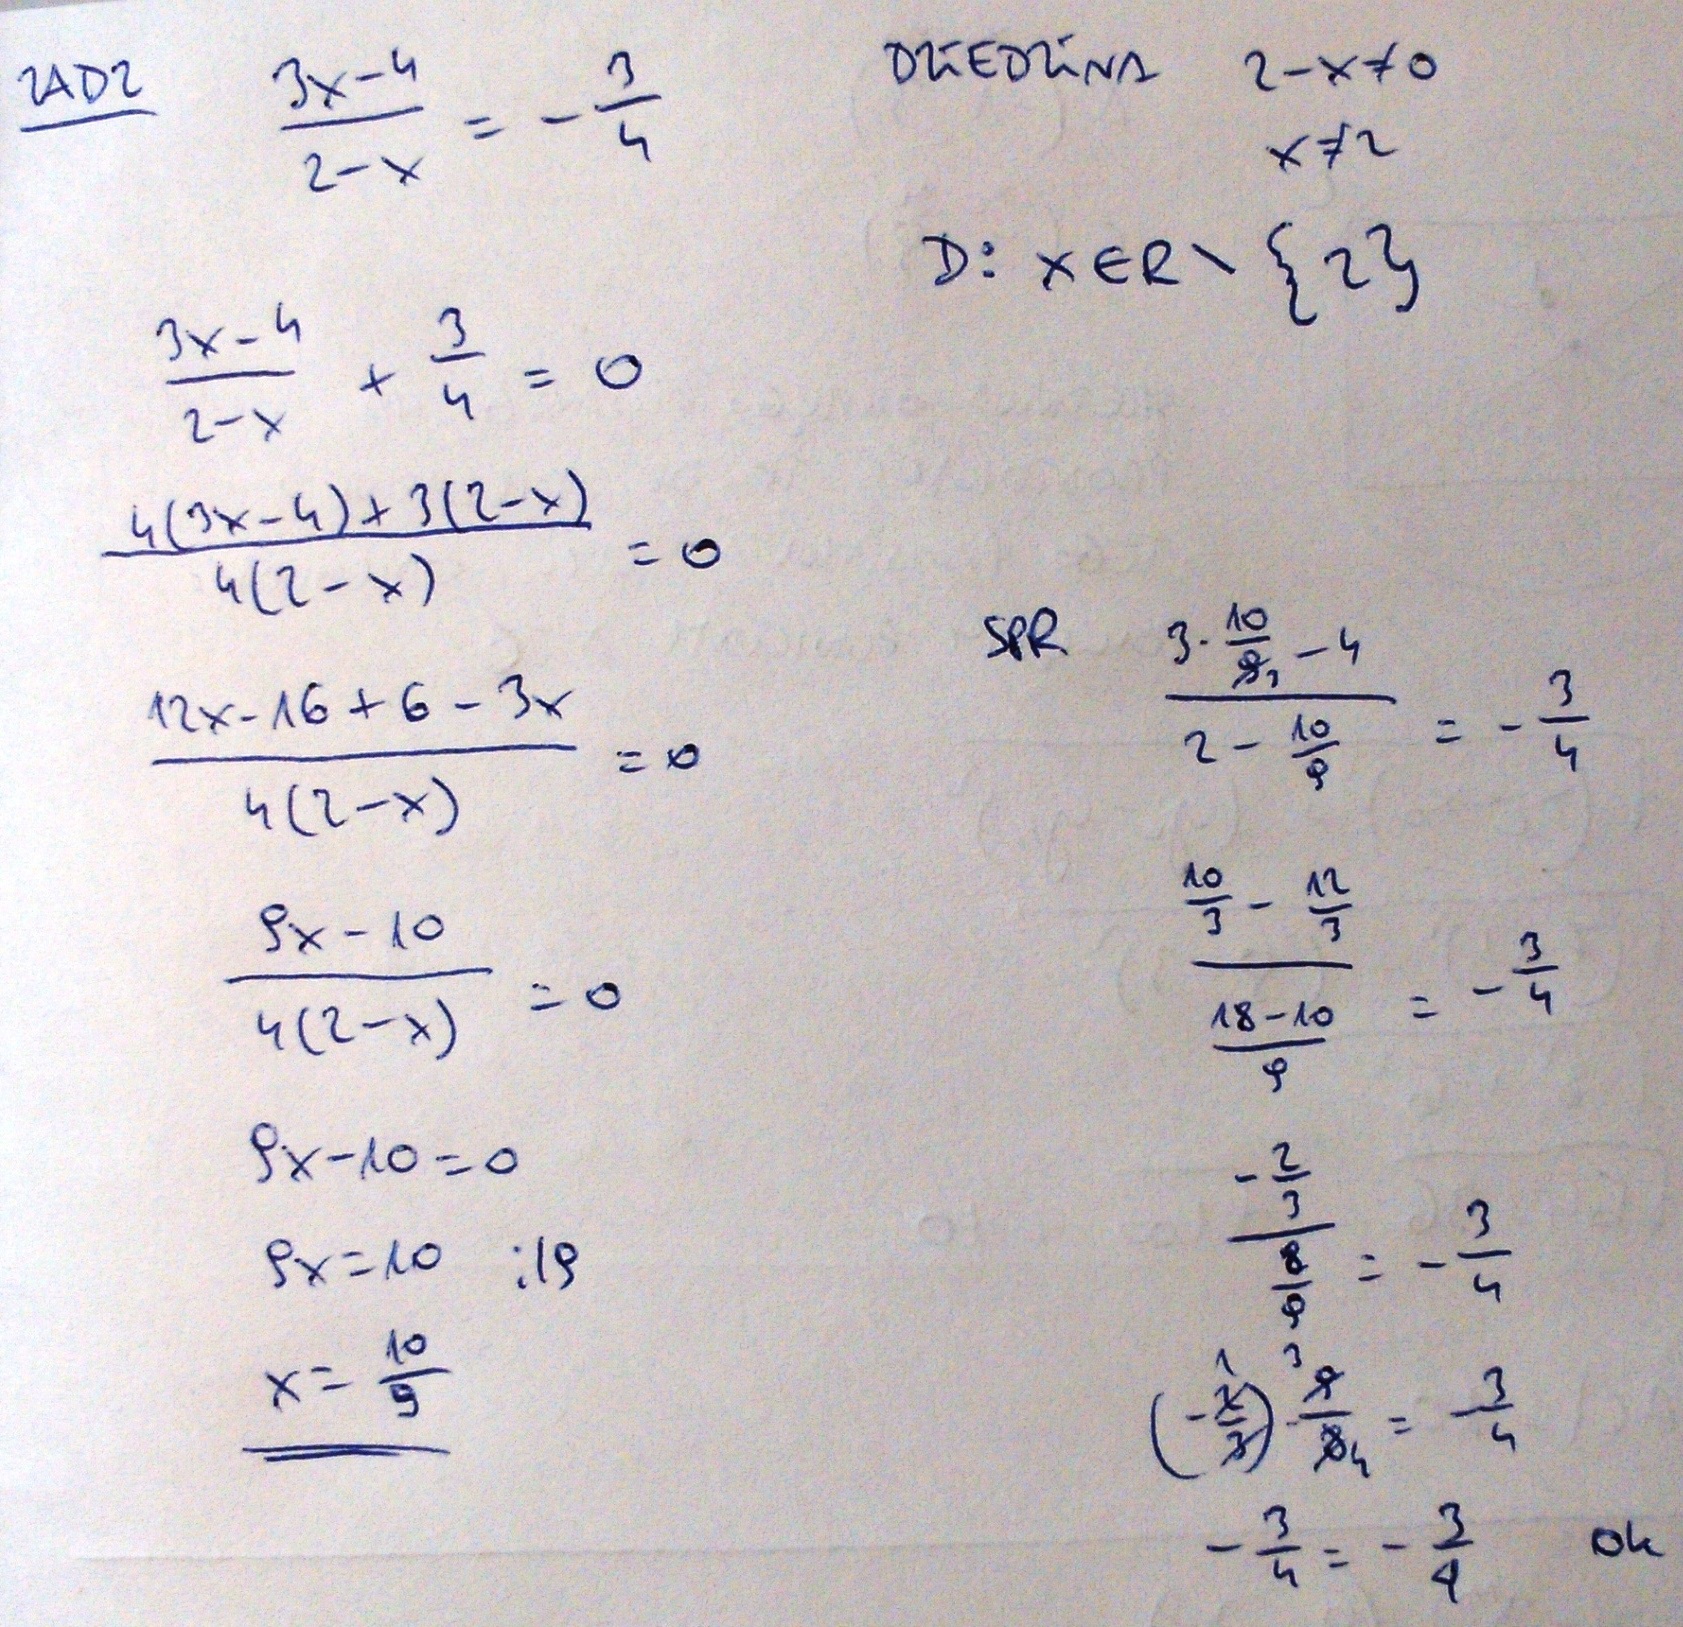 ZAD2
(3x-4)/(2-x) = -3/4
DZIEDZINA 2-x≠0
x≠2
D: x∈R\{2}
(3x-4)/(2-x) + 3/4 = 0
(4(3x-4)+3(2-x))/(4(2-x)) = 0
(12x-16+6-3x)/(4(2-x)) = 0
(9x-10)/(4(2-x)) = 0
9x-10=0
9x=10 :|9
x=10/9
SPR (3·10/9₃ -4)/(2-10/9) = -3/4
(10/3 - 12/3)/((18-10)/9) = -3/4
(-2/3)/(8/9) = -3/4
(-¹2/3)·³9/8₄ = -3/4
-3/4 = -3/4 ok